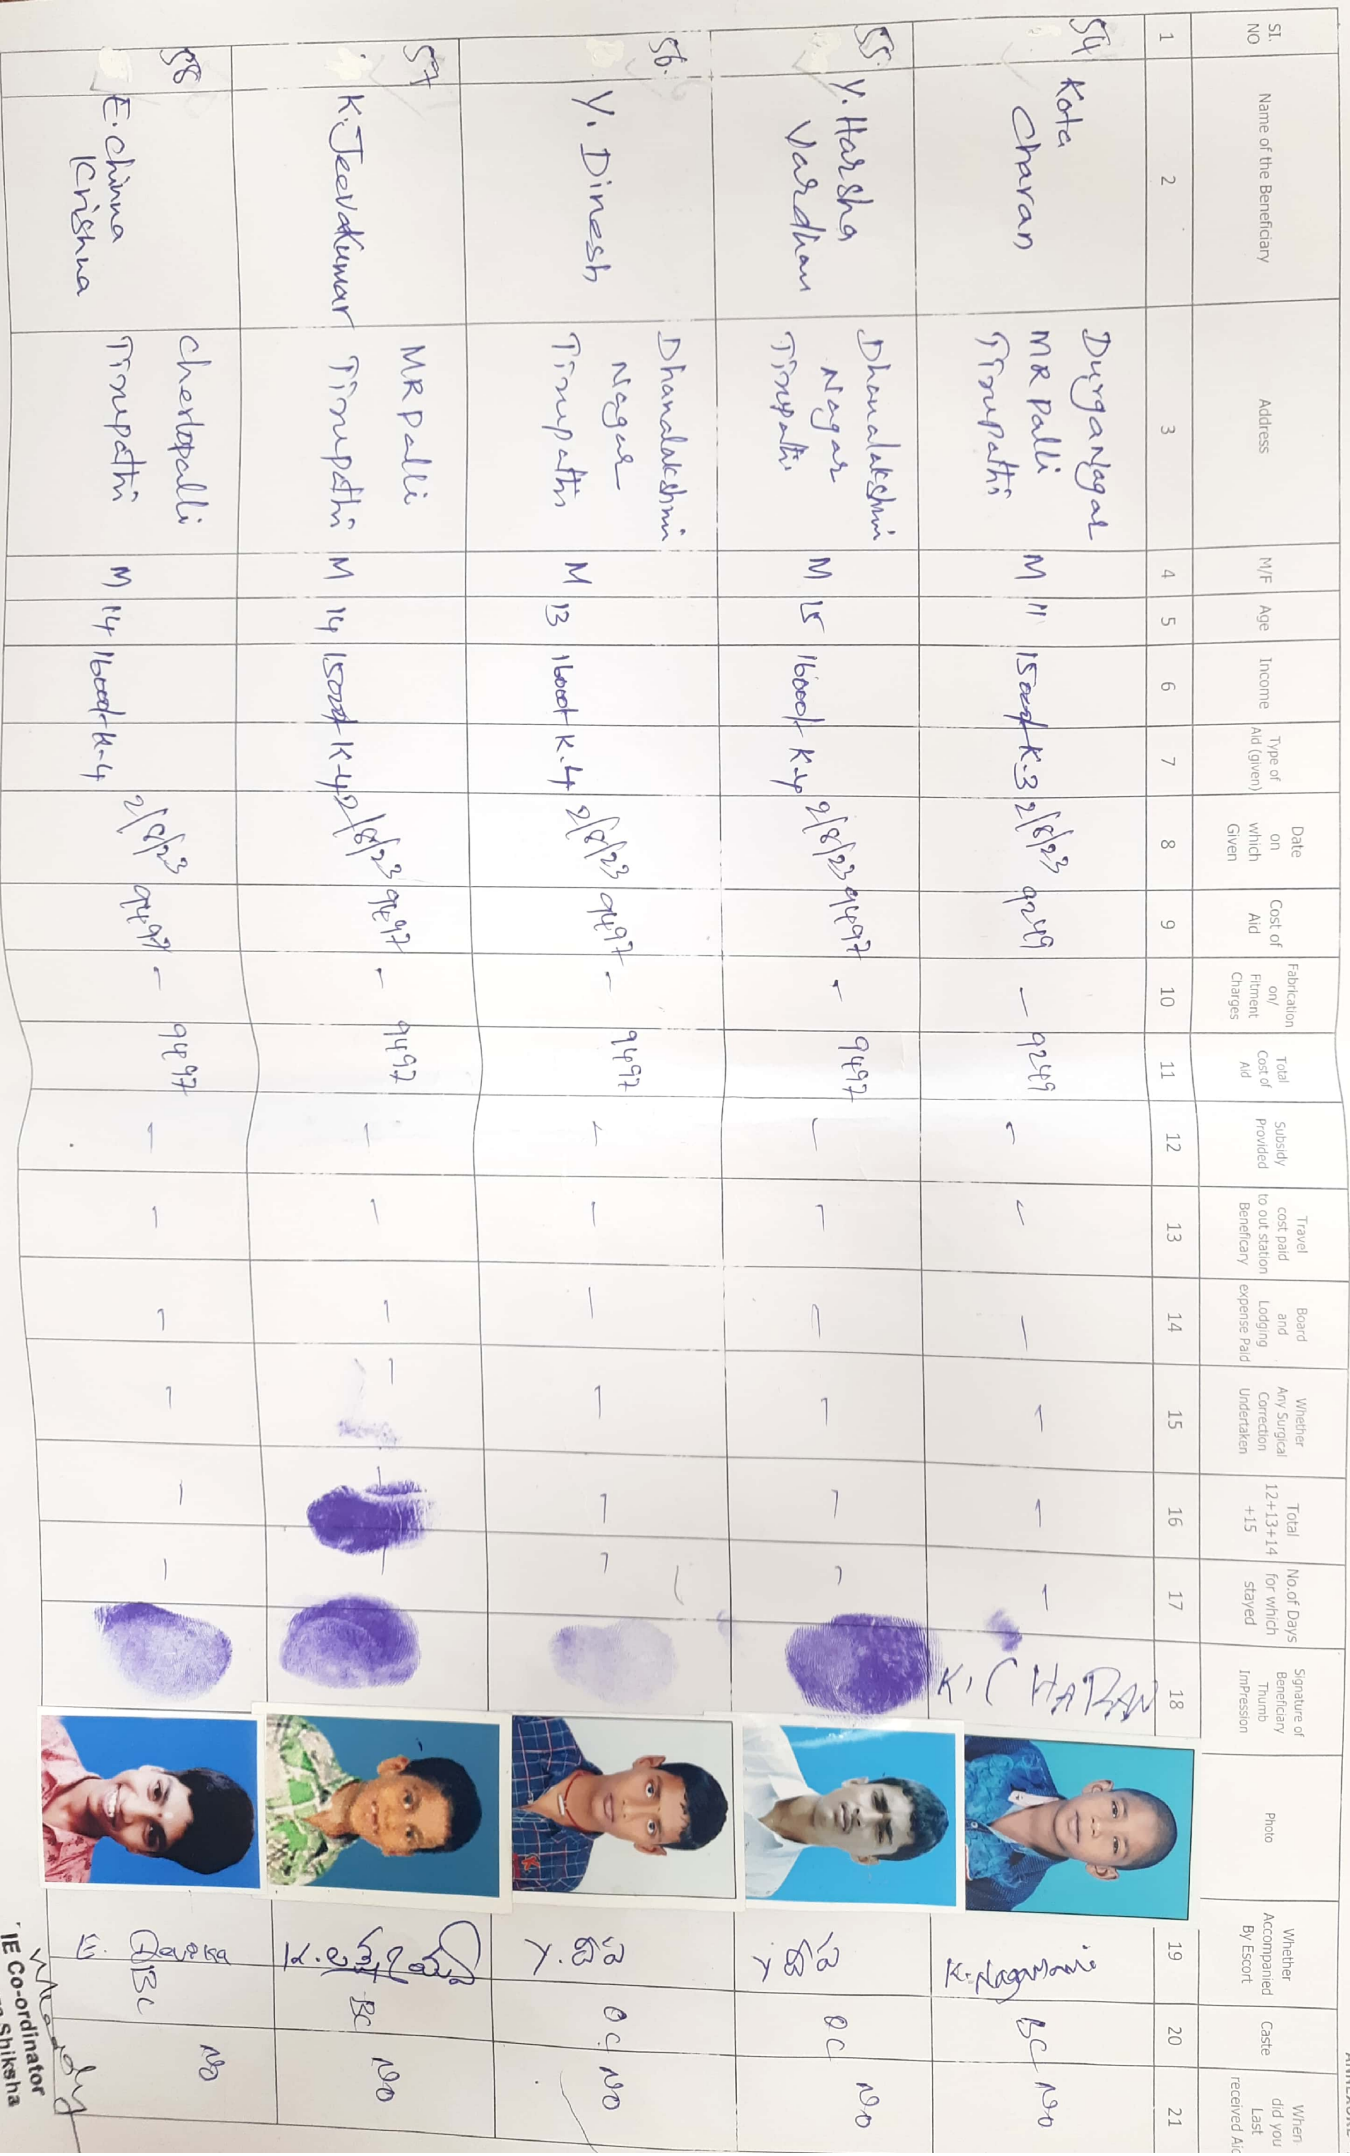 ANNEXURE
SI. NO
Name of the Beneficiary
Address
M/F
Age
Income
Type of Aid (given)
Date on which Given
Cost of Aid
Fabrication on/ Fitment Charges
Total Cost of Aid
Subsidy Provided
Travel cost paid to out station Beneficary
Board and Lodging expense Paid
Whether Any Surgical Correction Undertaken
Total 12+13+14 +15
No.of Days for which stayed
Signature of Beneficiary Thumb ImPression
Photo
Whether Accompanied By Escort
Caste
When did you Last received Aid
1 2 3 4 5 6 7 8 9 10 11 12 13 14 15 16 17 18 19 20 21
54 Kota Charan Durga Nagar MR Palli Tirupathi M 11 15000/- K-3 2/8/23 9249 - 9249 - - - - - - K.CHARAN K.Nagamani BC No
55. Y. Harsha Vardhan Dhanalakshmi Nagar Tirupathi M 15 16000/- K-4 2/8/23 9497 - 9497 - - - - - - Y. OC No
56. Y. Dinesh Dhanalakshmi Nagar Tirupathi M 13 16000/- K-4 2/8/23 9497 - 9497 - - - - - - Y. OC No
57 K.Jeevakumar MR Palli Tirupathi M 14 15000/- K-4 2/8/23 9497 - 9497 - - - - - - K. BC No
58 E.Chinna Krishna Cherlopalli Tirupathi M 14 16000/- K-4 2/8/23 9497 - 9497 - - - - - - E. Devika BC No
IE Co-ordinator
Shiksha